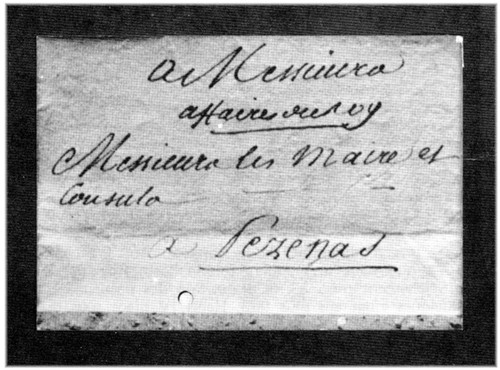 a Messieurs
affaires du roy
Messieurs les Maire et
Consuls
a Pezenas